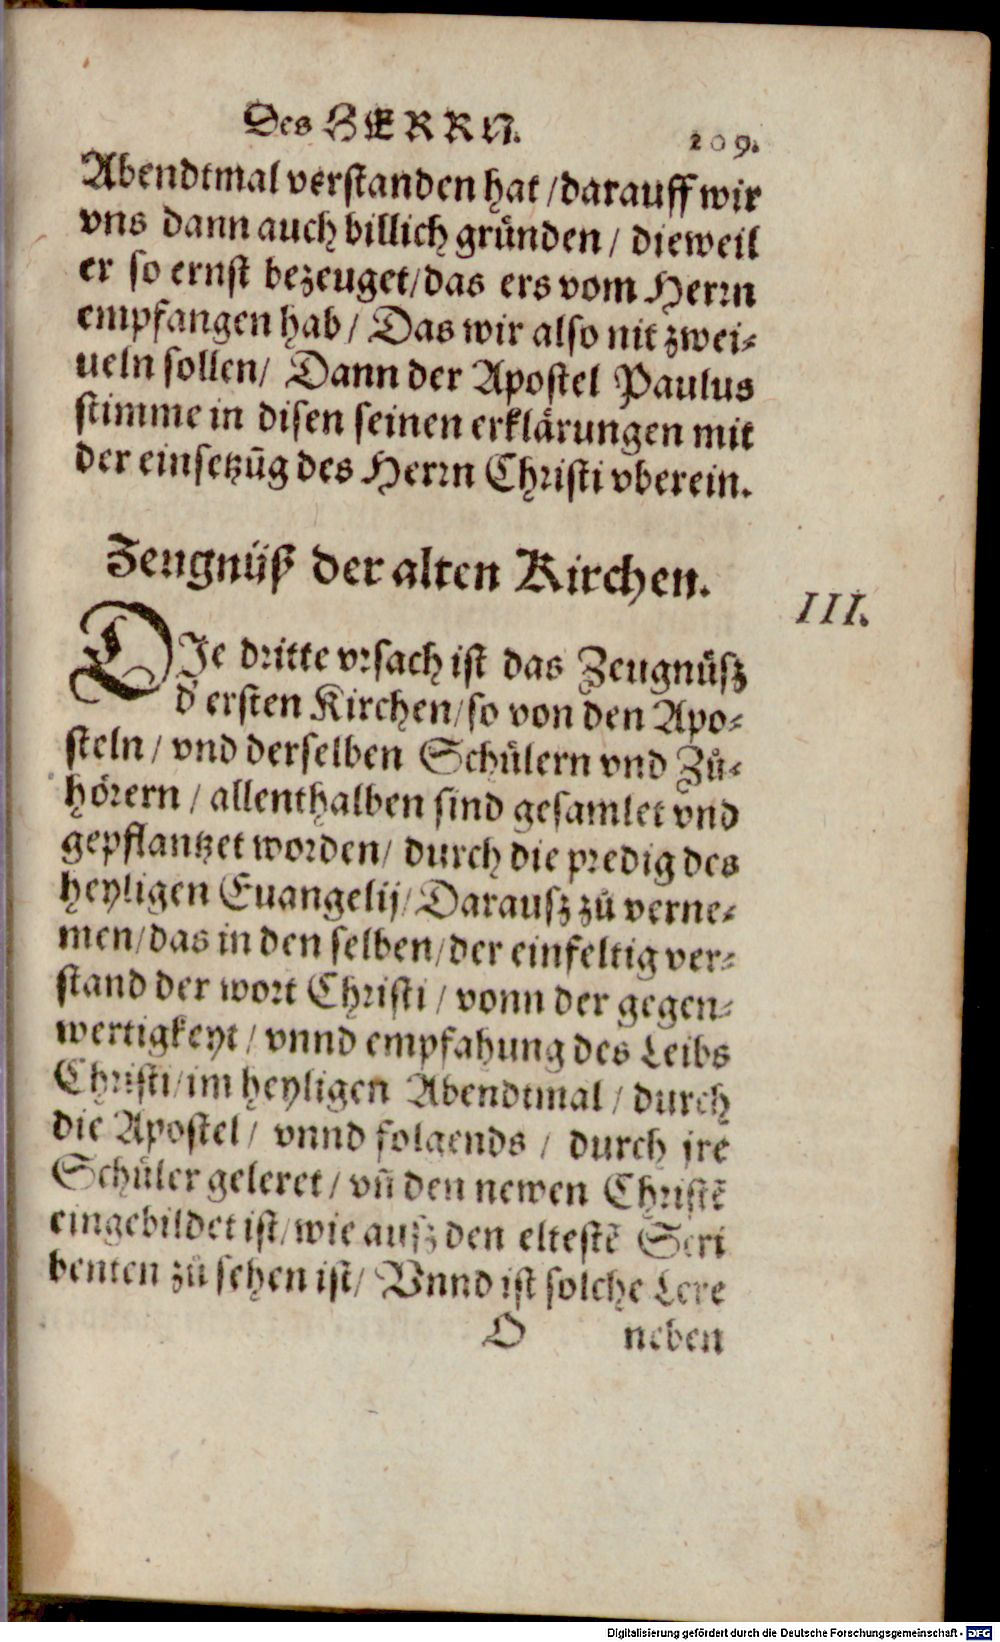 Des HERRN. 209.
Abendtmal verstanden hat / darauff wir
vns dann auch billich gründen / dieweil
er so ernst bezeuget / das ers vom Herrn
empfangen hab / Das wir also nit zwei-
ueln sollen / Dann der Apostel Paulus
stimme in disen seinen erklärungen mit
der einsetzūg des Herrn Christi vberein.
Zeugnüß der alten Kirchen.
III.
DIe dritte vrsach ist das Zeugnüß
d' ersten Kirchen / so von den Apo-
steln / vnd derselben Schülern vnd Zů-
hörern / allenthalben sind gesamlet vnd
gepflantzet worden / durch die predig des
heyligen Euangelij / Darauß zů verne-
men / das in den selben / der einfeltig ver-
stand der wort Christi / vonn der gegen-
wertigkeyt / vnnd empfahung des Leibs
Christi / im heyligen Abendtmal / durch
die Apostel / vnnd folgends / durch jre
Schüler geleret / vñ den newen Christē
eingebildet ist / wie auß den eltestē Scri
benten zů sehen ist / Vnnd ist solche Lere
O neben
Digitalisierung gefördert durch die Deutsche Forschungsgemeinschaft - DFG